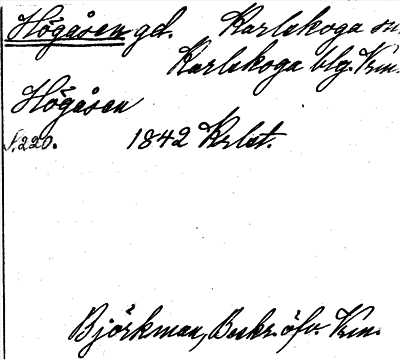 Högåsen gd. Karlskoga sn.
Karlskoga blg. Vrm.
Högåsen
s. 220. 1842 Krlst.
Björkman, Beskr. öfv. Vrm.